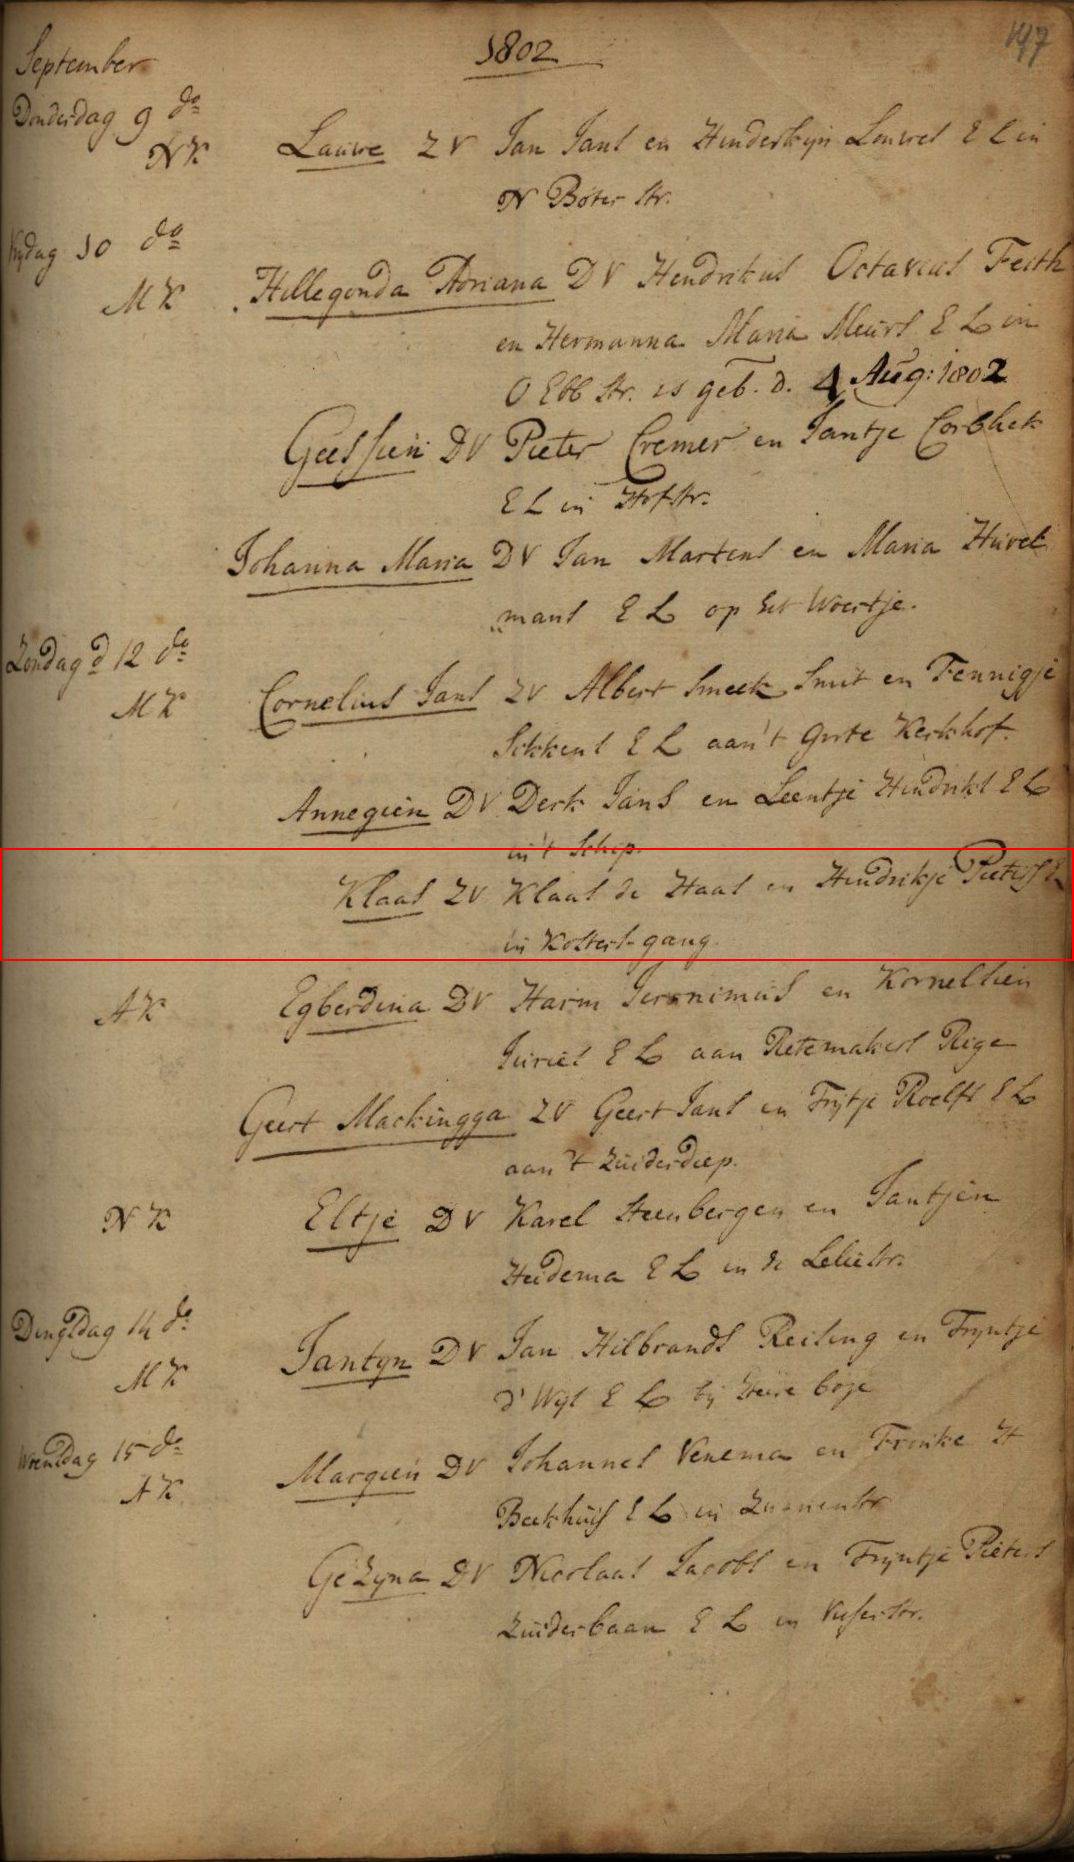 September
1802
147
Donderdag 9 do
NK
Lauwe ZV Jan Jans en Hinderkijn Louwes E L in
N Boter str.
Vrydag 10 do
MK
Hillegonda Adriana DV Hendrikus Octavius Feith
en Hermanna Maria Meurs E L in
O Ebb str. is geb. d. 4 Aug: 1802
Geessien DV Pieter Cremer en Jantje
E L in Hofstr.
Johanna Maria DV Jan Martens en Maria Huvel
mans E L op het Woertje.
Zondag d 12 do
MK
Cornelius Jans ZV Albert Smeek Smit en Fennigje
Sikkens E L aan't Grote Kerkhof.
Annegien DV Derk Jans en Leentje Hindriks E L
in't Schip.
Klaas ZV Klaas de Haas en Hendrikje Pieters E L
in Kosters-gang
AK
Egberdina DV Harm Jeronimus en Kornelsien
Juries E L aan Retemakers Rige
Geert Mackingga ZV Geert Jans en Trijtje Roelfs E L
aan 't Zuiderdiep.
NK
Eltje DV Karel Steenbergen en Jantjen
Heidema E L in de Leliestr.
Dingsdag 14 do
MK
Jantyn DV Jan Hilbrands Reiling en Tryntje
d' Wyl E L bij Heere boge
Woensdag 15 do
AK
Margien DV Johannes Venema en Frouke H
Beekhuis E L in
Gezyna DV Nicolaas Jacobs en Tryntje Pieters
Zuiderbaan E L in Visserstr.